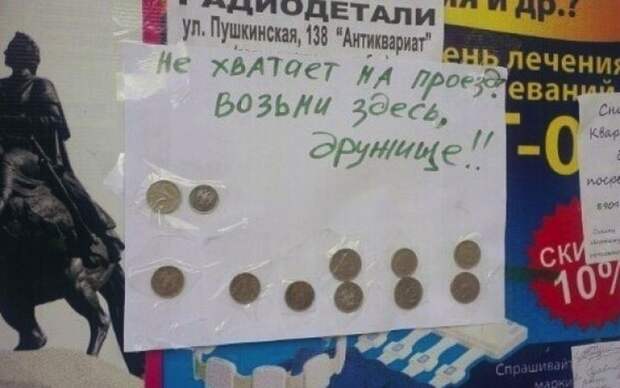 РАДИОДЕТАЛИ
ул. Пушкинская, 138 "Антиквариат"
и др.?
лечения
Не хватает на проезд?
возьми здесь,
дружище!!
СКИ
10%
Спрашивай